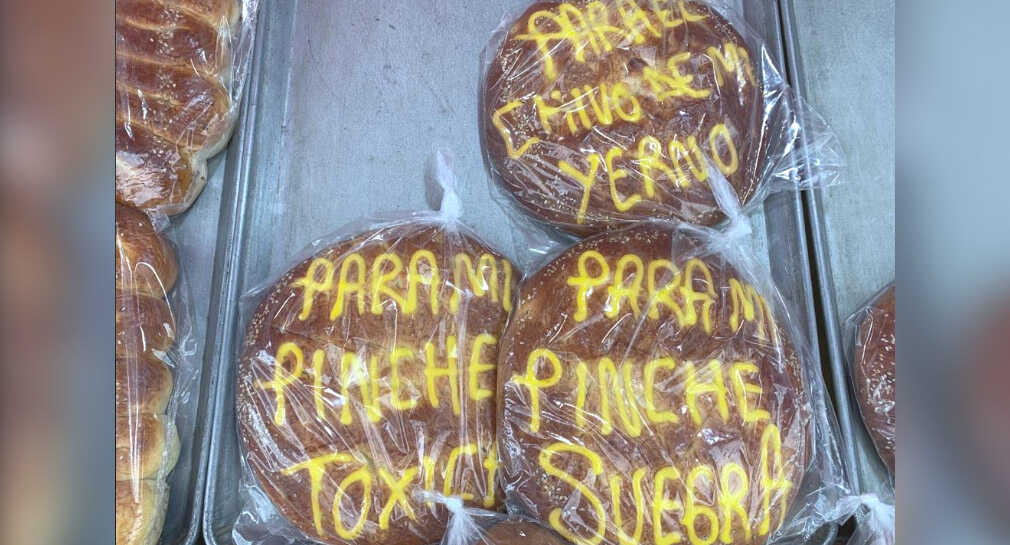 PARA EL
CHIVO DE MI
YERNO
PARA MI
PINCHE
TOXICA
PARA MI
PINCHE
SUEGRA